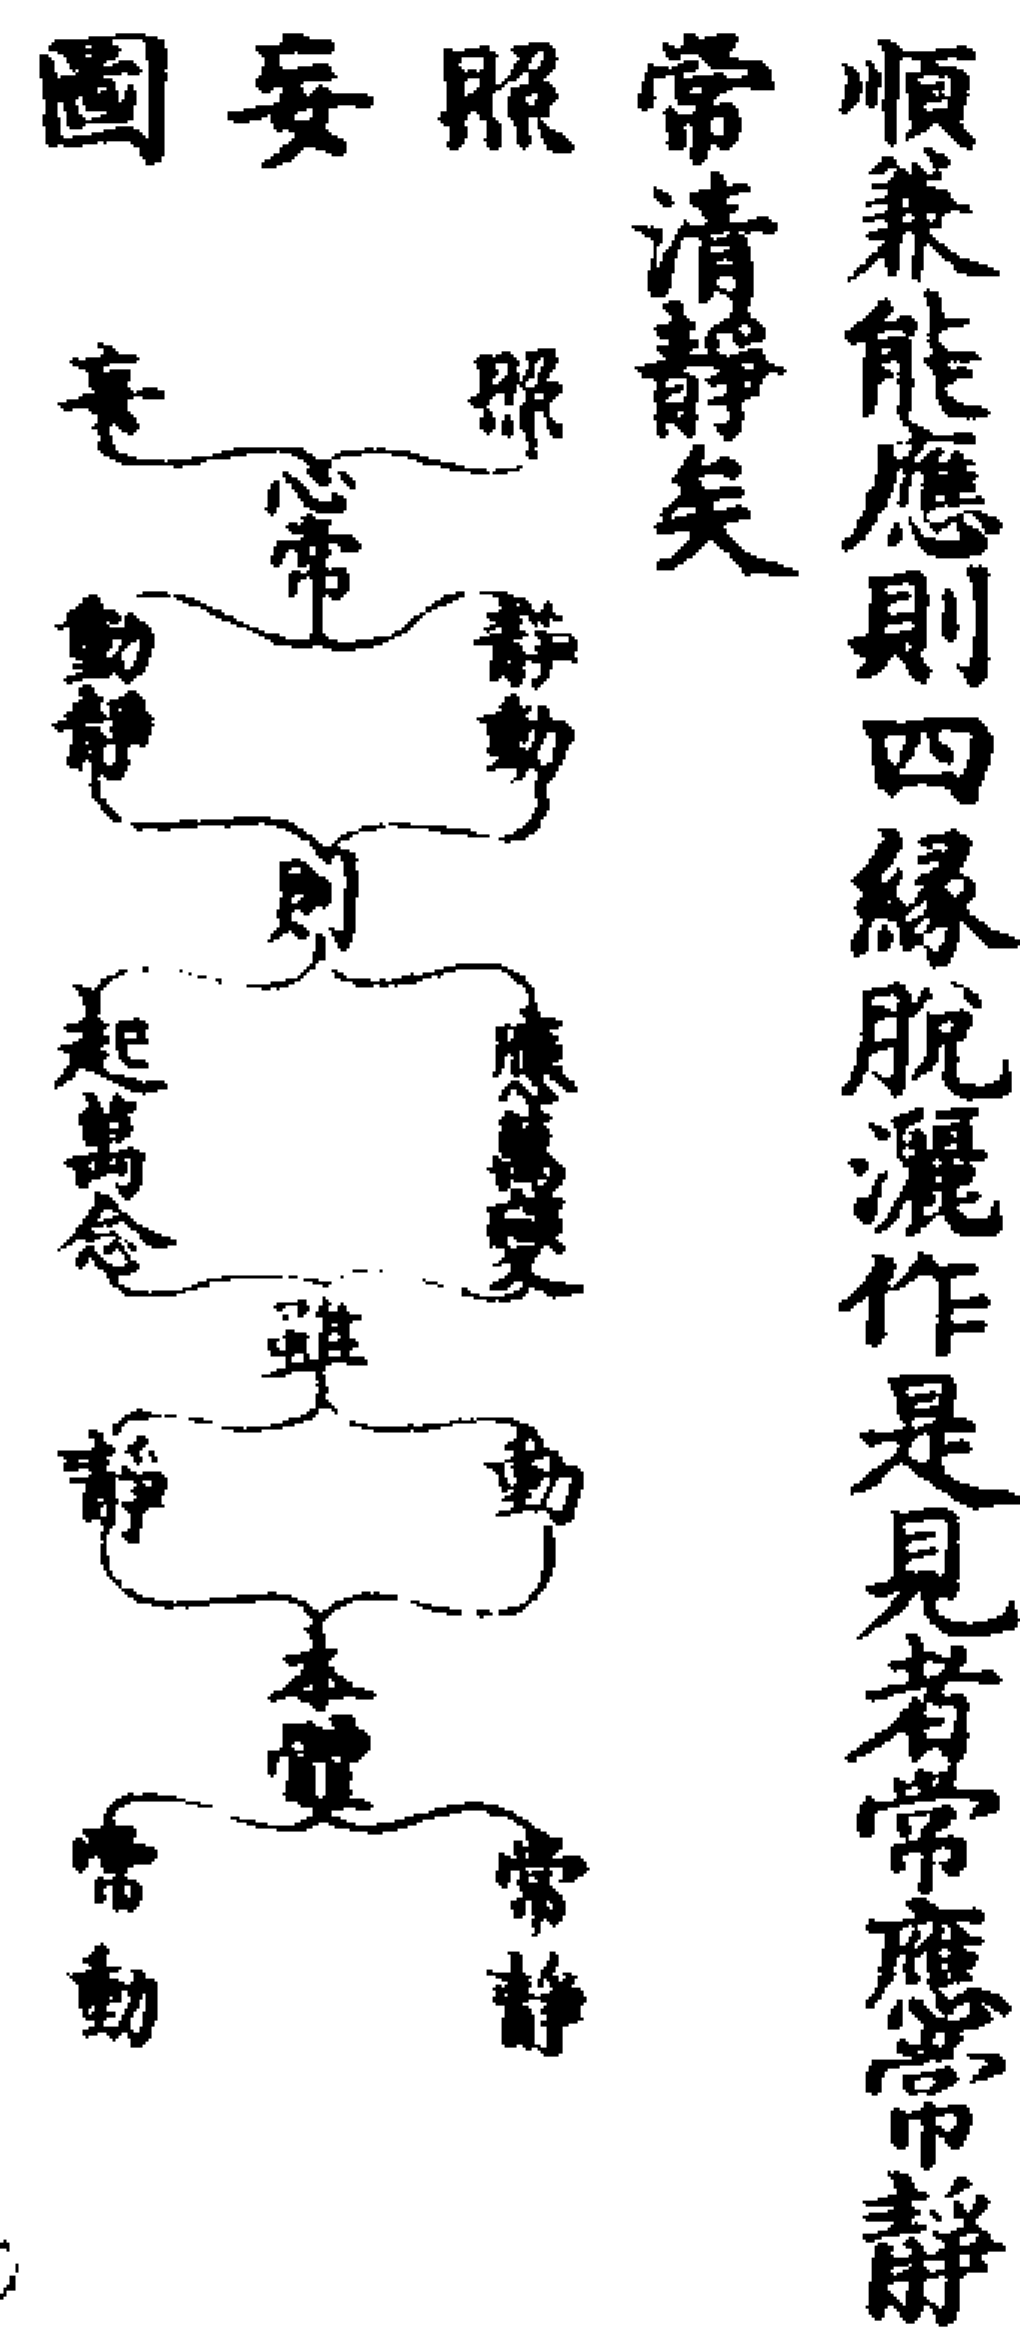 順兼能應則四縁脫灑作是見者常應常靜
常清靜矣
照妄圖
照
妄
心常
靜動
動靜
則
應萬變
起萬念
雖
動
靜
本
常靜
常動